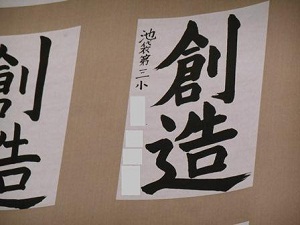 創造
池袋第三小
創造